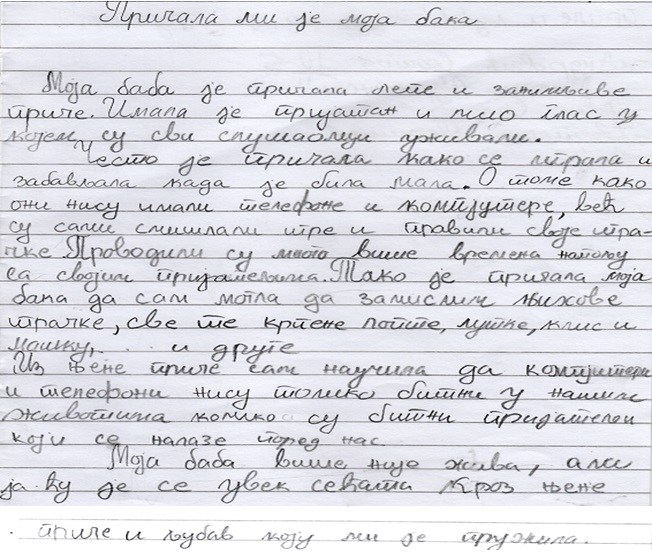 Причала ми је моја бака
Моја баба је причала лепе и занимљиве
приче. Имала је пријатан и мио глас у
којем су сви слушаоци уживали.
Често је причала како се играла и
забављала када је била мала. О томе како
они нису имали телефоне и компјутере, већ
су сами смишљали игре и правили своје игра-
чке. Проводили су много више времена напољу
са својим пријатељима. Тако је причала моја
баба да сам могла да замислим њихове
играчке, све те крпене лопте, лутке, клис и
машку, . . . и друге
Из њене приче сам научила да компјутери
и телефони нису толико битни у нашим
животима колико су битни пријатељи
који се налазе поред нас.
Моја баба више није жива, али
ја ћу је се увек сећати кроз њене
приче и љубав коју ми је пружила.